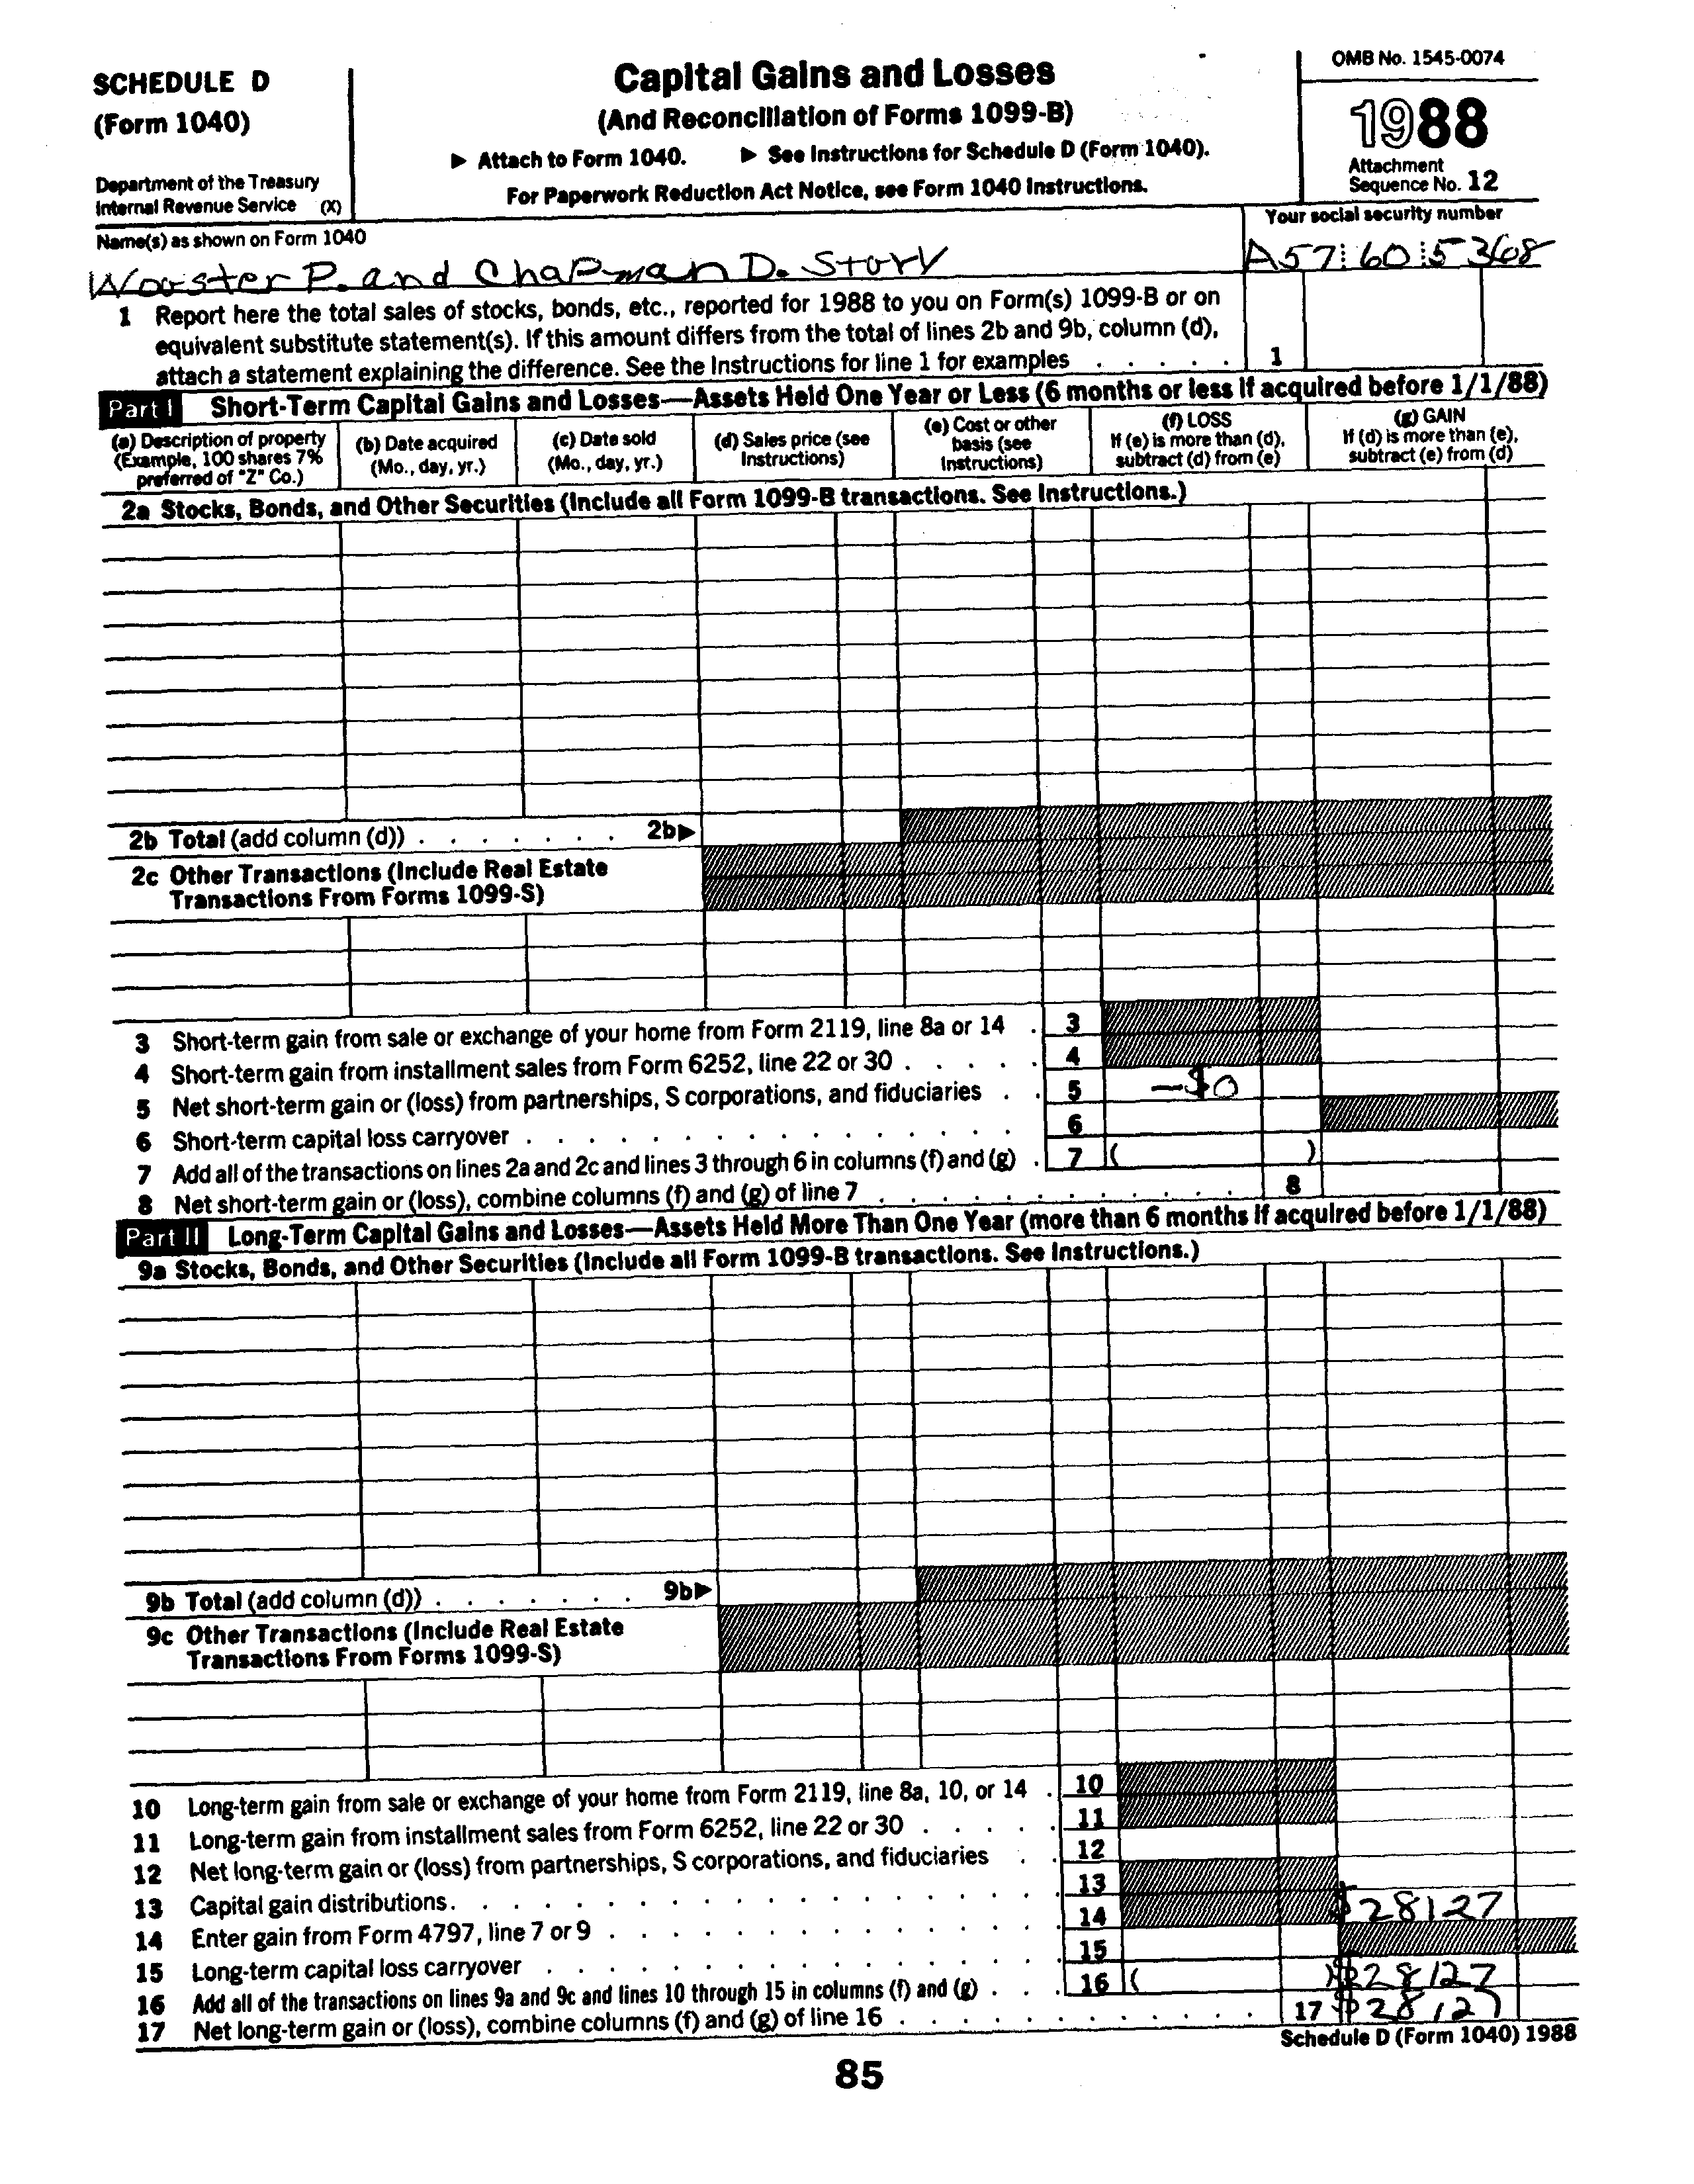 SCHEDULE D
(Form 1040)
Department of the Treasury
Internal Revenue Service (X)
Capital Gains and Losses
(And Reconciliation of Forms 1099-B)
▶ Attach to Form 1040. ▶ See Instructions for Schedule D (Form 1040).
For Paperwork Reduction Act Notice, see Form 1040 Instructions.
OMB No. 1545-0074
1988
Attachment
Sequence No. 12
Name(s) as shown on Form 1040
Your social security number
Wooster P. and Chapman D. Story
A57 60 5368
1 Report here the total sales of stocks, bonds, etc., reported for 1988 to you on Form(s) 1099-B or on
equivalent substitute statement(s). If this amount differs from the total of lines 2b and 9b, column (d),
attach a statement explaining the difference. See the Instructions for line 1 for examples . . . . . 1
Part I Short-Term Capital Gains and Losses—Assets Held One Year or Less (6 months or less if acquired before 1/1/88)
(a) Description of property
(Example, 100 shares 7%
preferred of "Z" Co.)
(b) Date acquired
(Mo., day, yr.)
(c) Date sold
(Mo., day, yr.)
(d) Sales price (see
Instructions)
(e) Cost or other
basis (see
Instructions)
(f) LOSS
If (e) is more than (d),
subtract (d) from (e)
(g) GAIN
If (d) is more than (e),
subtract (e) from (d)
2a Stocks, Bonds, and Other Securities (Include all Form 1099-B transactions. See Instructions.)
2b Total (add column (d)) . . . . . . . 2b▶
2c Other Transactions (Include Real Estate
Transactions From Forms 1099-S)
3 Short-term gain from sale or exchange of your home from Form 2119, line 8a or 14 . 3
4 Short-term gain from installment sales from Form 6252, line 22 or 30 . . . . . 4
5 Net short-term gain or (loss) from partnerships, S corporations, and fiduciaries . . 5 -$0
6 Short-term capital loss carryover . . . . . . . . . . . . . . . . 6
7 Add all of the transactions on lines 2a and 2c and lines 3 through 6 in columns (f) and (g) . 7 ( )
8 Net short-term gain or (loss), combine columns (f) and (g) of line 7 . . . . . . . . . . . . 8
Part II Long-Term Capital Gains and Losses—Assets Held More Than One Year (more than 6 months if acquired before 1/1/88)
9a Stocks, Bonds, and Other Securities (Include all Form 1099-B transactions. See Instructions.)
9b Total (add column (d)) . . . . . . . 9b▶
9c Other Transactions (Include Real Estate
Transactions From Forms 1099-S)
10 Long-term gain from sale or exchange of your home from Form 2119, line 8a, 10, or 14 . 10
11 Long-term gain from installment sales from Form 6252, line 22 or 30 . . . . . 11
12 Net long-term gain or (loss) from partnerships, S corporations, and fiduciaries . . 12
13 Capital gain distributions . . . . . . . . . . . . . . . . . . . 13
14 Enter gain from Form 4797, line 7 or 9 . . . . . . . . . . . . . . 14 $28127
15 Long-term capital loss carryover . . . . . . . . . . . . . . . . 15
16 Add all of the transactions on lines 9a and 9c and lines 10 through 15 in columns (f) and (g) . . . 16 ( ) $28127
17 Net long-term gain or (loss), combine columns (f) and (g) of line 16 . . . . . . . . . . . . 17 $28127
Schedule D (Form 1040) 1988
85